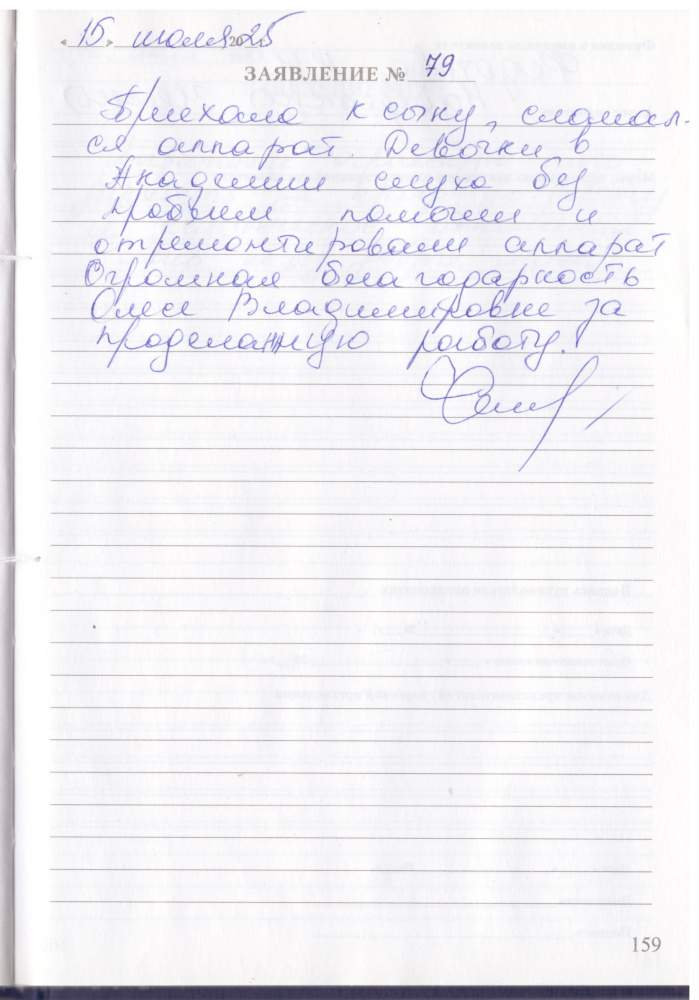 «15» июля 2025
ЗАЯВЛЕНИЕ № 79
Приехала к сыну, сломал-
ся аппарат. Девочки в
Академии слуха без
проблем помогли и
отремонтировали аппарат
Огромная благодарность
Олесе Владимировне за
проделанную работу.
159